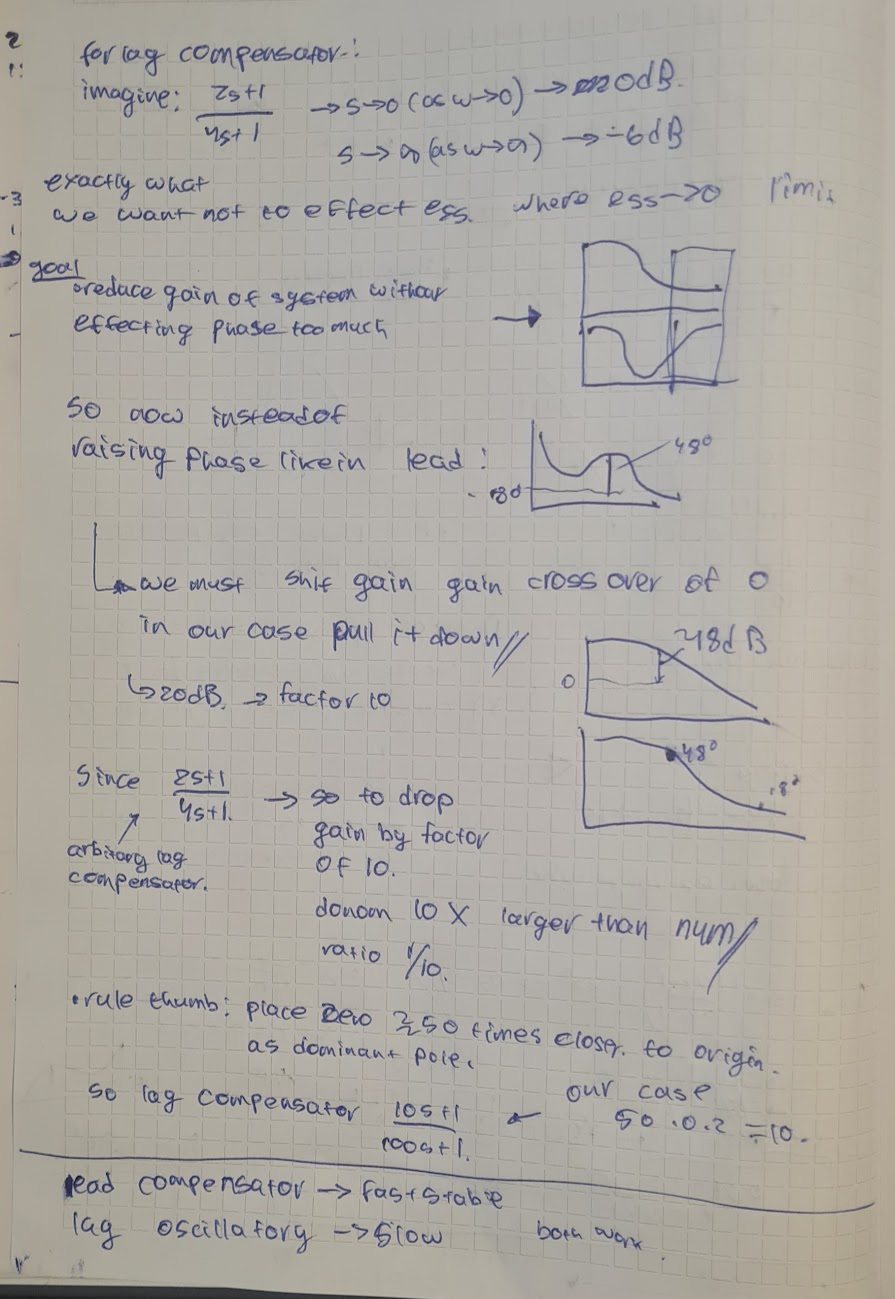 2
1:
for lag compensator:
imagine: 2s+1 / 4s+1 → s→0 (as w→0) → 0dB.
s→∞ (as w→∞) → -6dB
exactly what
we want not to effect ess. where ess→0 limit
-3
1
goal
reduce gain of system without
effecting phase too much
so now instead of
raising phase like in lead:
48°
we must shif gain gain cross over of 0
in our case pull it down //
48dB
0
↳20dB, → factor 10
48°
Since 2s+1 / 4s+1. → so to drop
gain by factor
of 10.
arbitary lag
compensator.
10 x larger than num //
ratio 1/10.
• rule thumb: place zero 50 times closer. to origin.
as dominant pole.
our case
so lag compensator 10s+1 / 100s+1. ← 50 . 0.2 = 10.
lead compensator → fast stable
lag oscillatory → slow both work